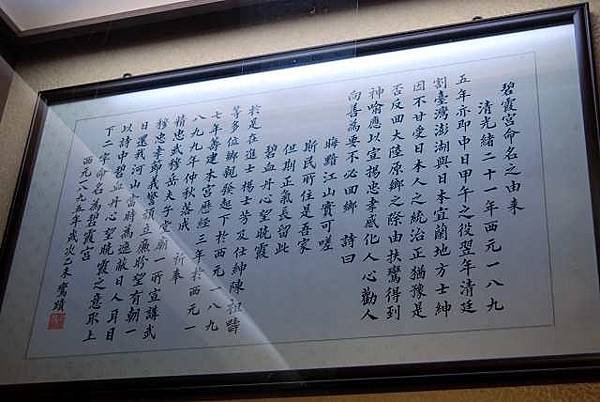 碧霞宮命名之由來
清光緒二十一年西元一八九
五年亦即中日甲午之役翌年清廷
割臺灣澎湖與日本宜蘭地方士紳
因不甘受日本人之統治正猶豫是
否反回大陸原鄉之際由扶鸞得到
神喻應以宣揚忠孝感化人心勸人
向善為要不必回鄉 詩曰
晦黯江山實可嗟
斯民所住是吾家
但期正氣長留此
碧血丹心望曉霞
於是在進士楊士芳及仕紳陳祖疇
等多位鄉親發起下於西元一八九
七年籌建本宮歷經三年於西元一
八九九年仲秋落成 祈奉
精忠武穆岳夫子堂廟一所宣講武
穆忠孝節義警頑立廉盼望有朝一
日還我河山當時為遮敝日人耳目
以詩中碧血丹心望曉霞之意取上
下二字命名為碧霞宮
西元一八九五年歲次乙未 鸞蹟